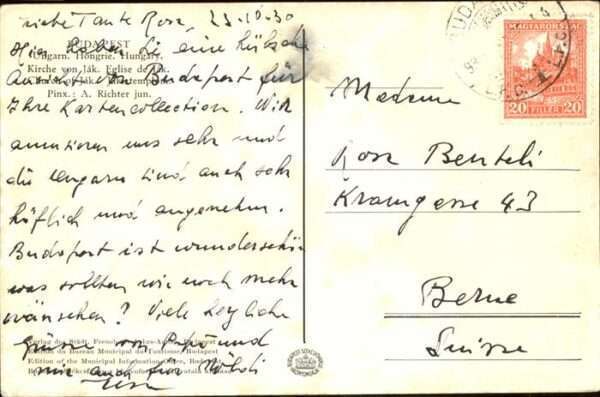 Liebe Tante Rosa, 25.10.30
Hier haben Sie eine hübsche
Ansicht von Budapest für
Ihre Kartencollection. Wir
amusieren uns sehr und
die Ungarn sind auch sehr
höflich und angenehm.
Budapest ist wunderschön
was sollten wir noch mehr
wünschen? Viele herzliche
Grüsse von und
mir auch für
BUDAPEST
Ungarn. Hongrie. Hungary.
Kirche von Ják. Eglise de Ják.
Pinx.: A. Richter jun.
Edition du Bureau Municipal de Tourisme, Budapest
Edition of the Municipal Information Office, Budapest
MAGYARORSZÁG
20 FILLÉR 20
BUDAPEST
Madame
Rosa Benteli
Kramgasse 43
Berne
Suisse